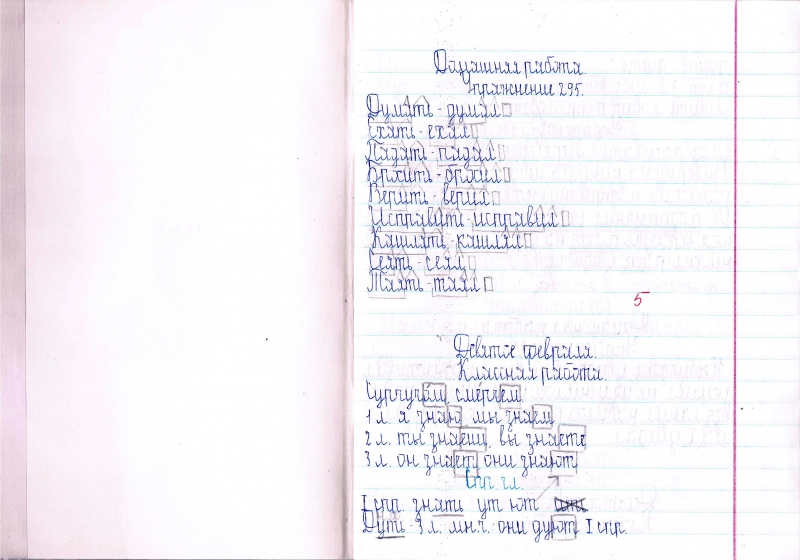 Домашняя работа.
Упражнение 295.
Думать - думал
Ехать - ехал
Падать - падал
Бросить - бросил
Верить - верил
Исправить - исправил
Кашлять - кашлял
Сеять - сеял
Таять - таял
5
Девятое февраля.
Классная работа.
Сургучом, смерчем
1 л. я знаю, мы знаем
2 л. ты знаешь, вы знаете
3 л. он знает, они знают
Спр. гл.
I спр. знать ут ют
Дуть - 3 л. мн.ч. они дуют I спр.